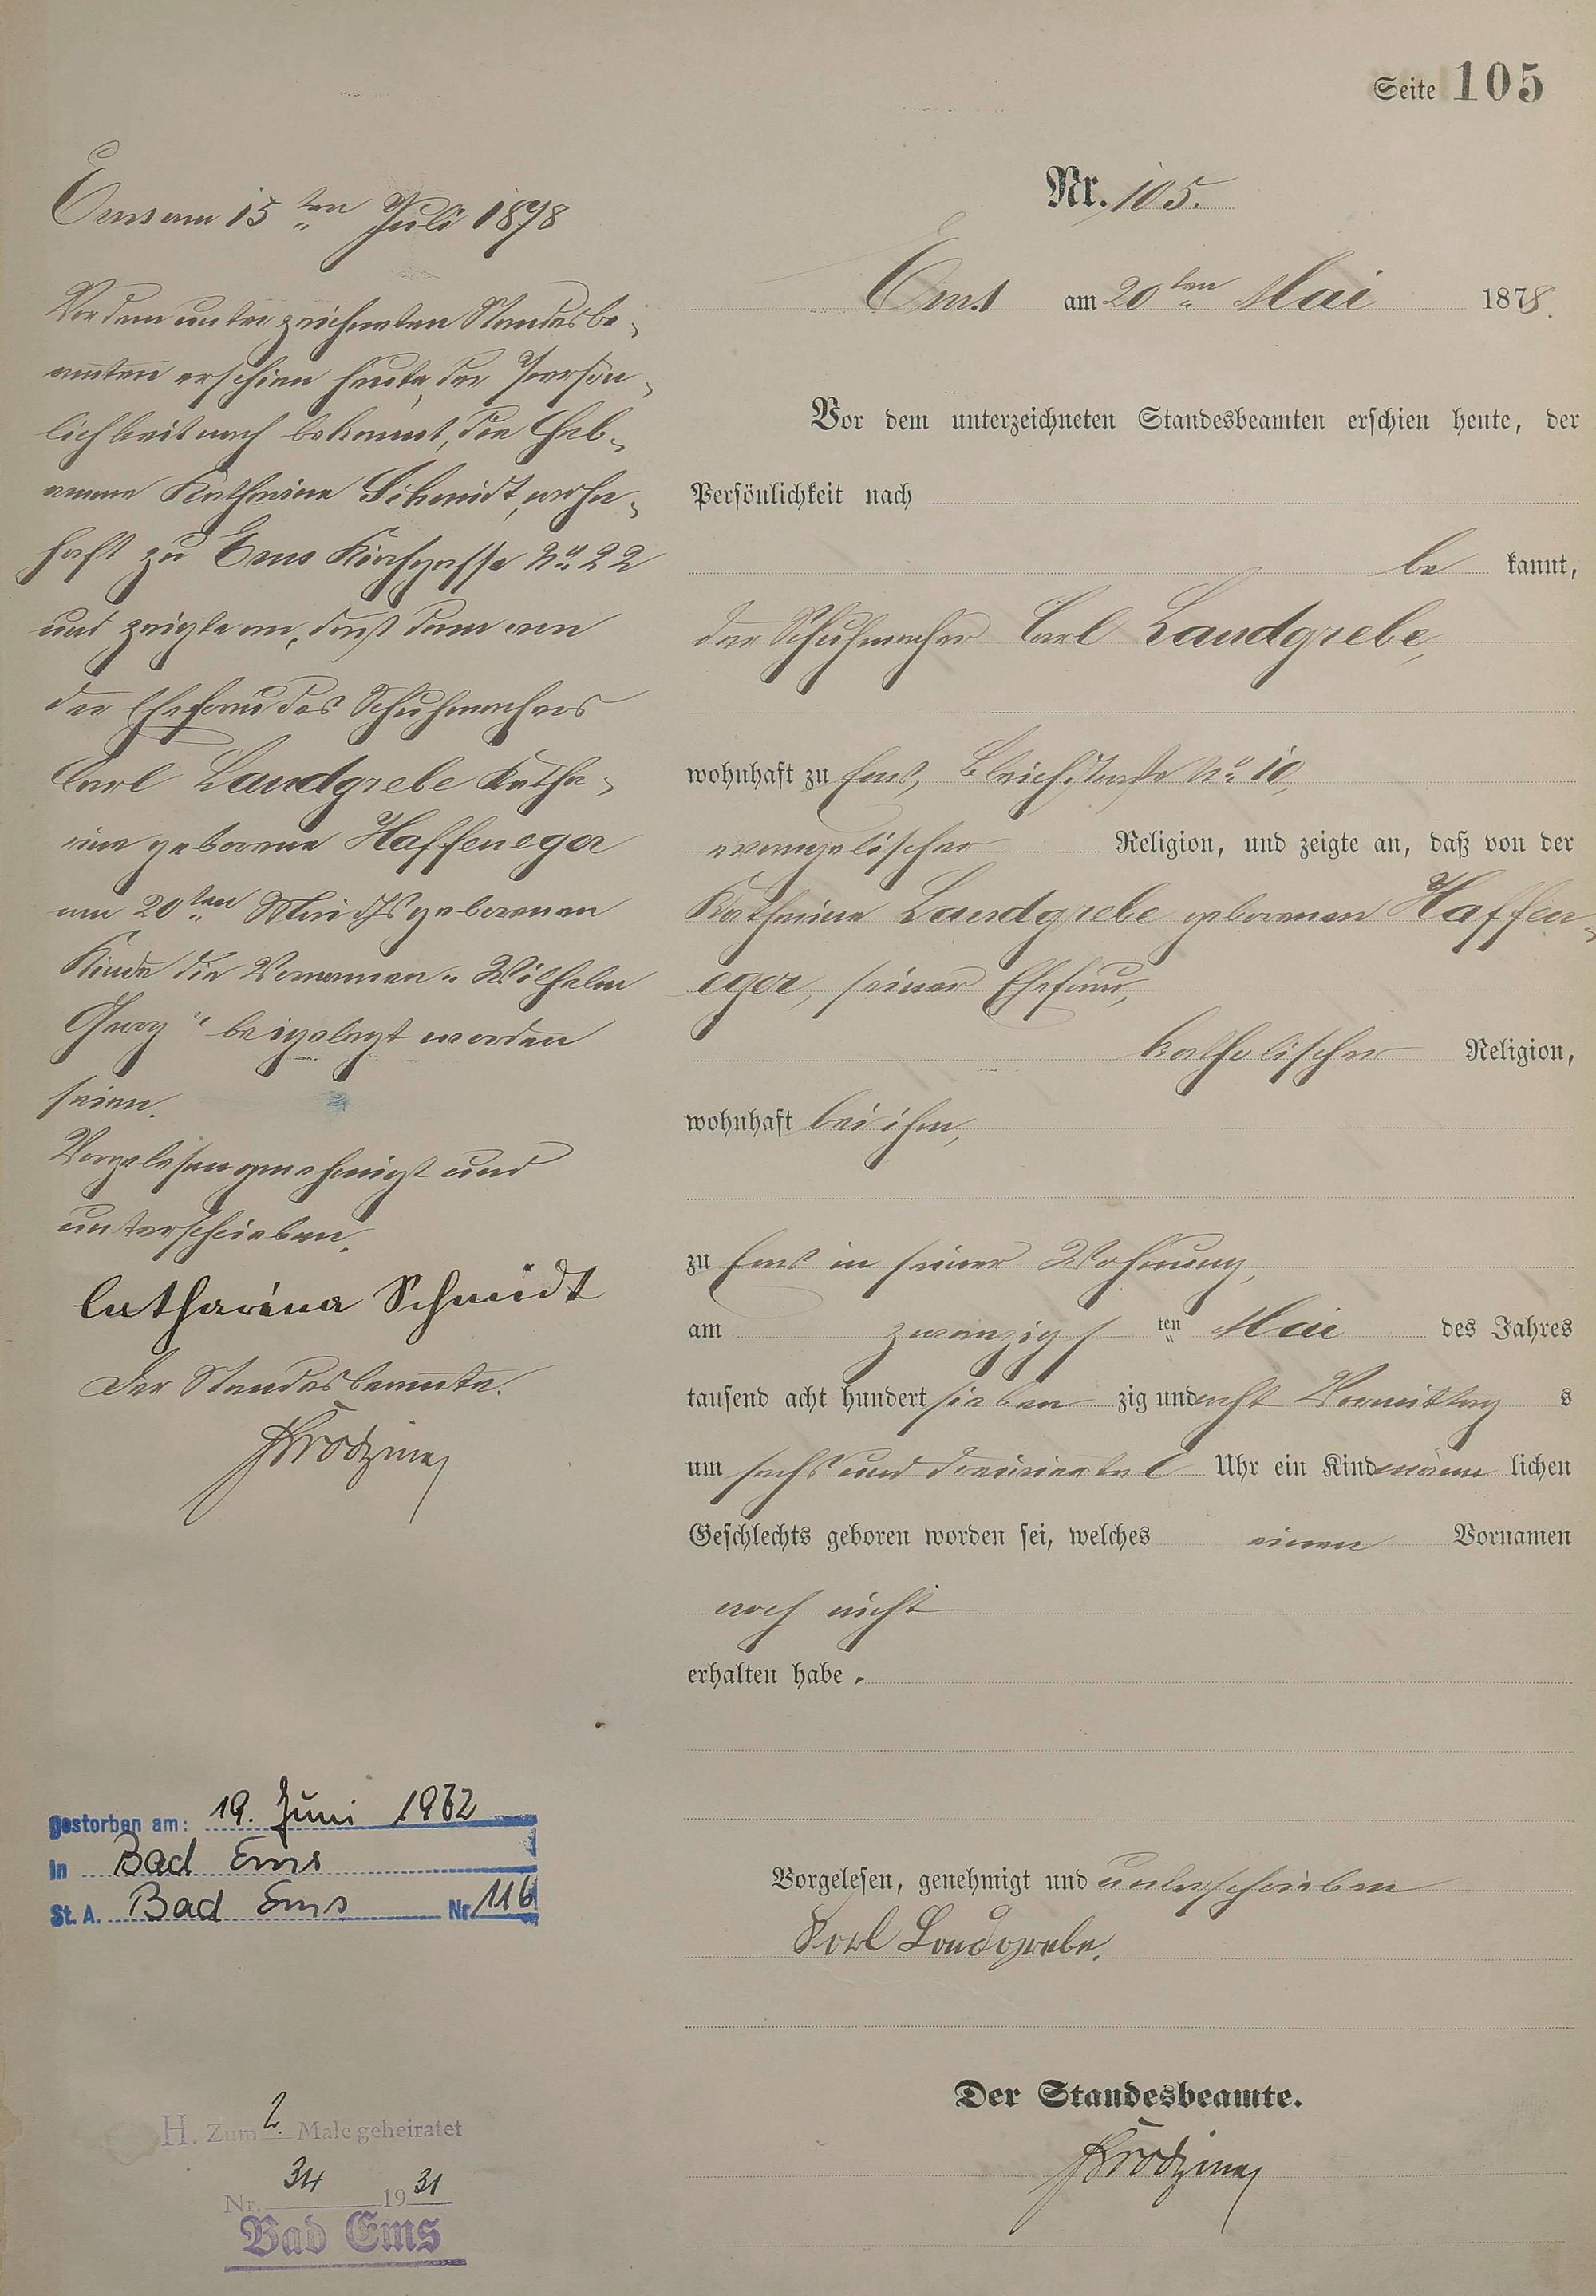 Seite 105
Nr. 105.
Ems am 20ten Mai 1878.
Vor dem unterzeichneten Standesbeamten erschien heute, der
Persönlichkeit nach
be kannt,
der Schuhmacher Carl Landgrebe,
wohnhaft zu Ems, Bleichstraße No 10,
evangelischer Religion, und zeigte an, daß von der
Katharina Landgrebe geborenen Haffen-
egor, seiner Ehefrau,
katholischer Religion,
wohnhaft bei ihm,
zu Ems in seiner Wohnung,
am zwanzigsten Mai des Jahres
tausend acht hundert sieben zig und acht Vormittag s
um sechs und dreiviertel Uhr ein Kind männ lichen
Geschlechts geboren worden sei, welches einen Vornamen
noch nicht
erhalten habe.
Vorgelesen, genehmigt und unterschrieben
Karl Landgrebe.
Der Standesbeamte.
Ems am 15ten Juli 1878
Vor dem unterzeichneten Standesbe-
amten erschien heute, der Persön-
lichkeit nach bekannt, die Heb-
amme Katharina Schmidt, wohn-
haft zu Ems Kirchgasse No 22
und zeigte an, daß dem von
der Ehefrau des Schuhmachers
Carl Landgrebe Katha-
rine geborene Haffenegor
am 20ten Mai d Js geborenen
Kinde die Vornamen "Wilhelm
Georg" beigelegt worden
seien.
Vorgelesen genehmigt und
unterschrieben.
Catharina Schmidt
Der Standesbeamte.
gestorben am: 19. Juni 1962
in Bad Ems
St. A. Bad Ems Nr 116
H. Zum 2. Male geheiratet
Nr. 34 1931
Bad Ems